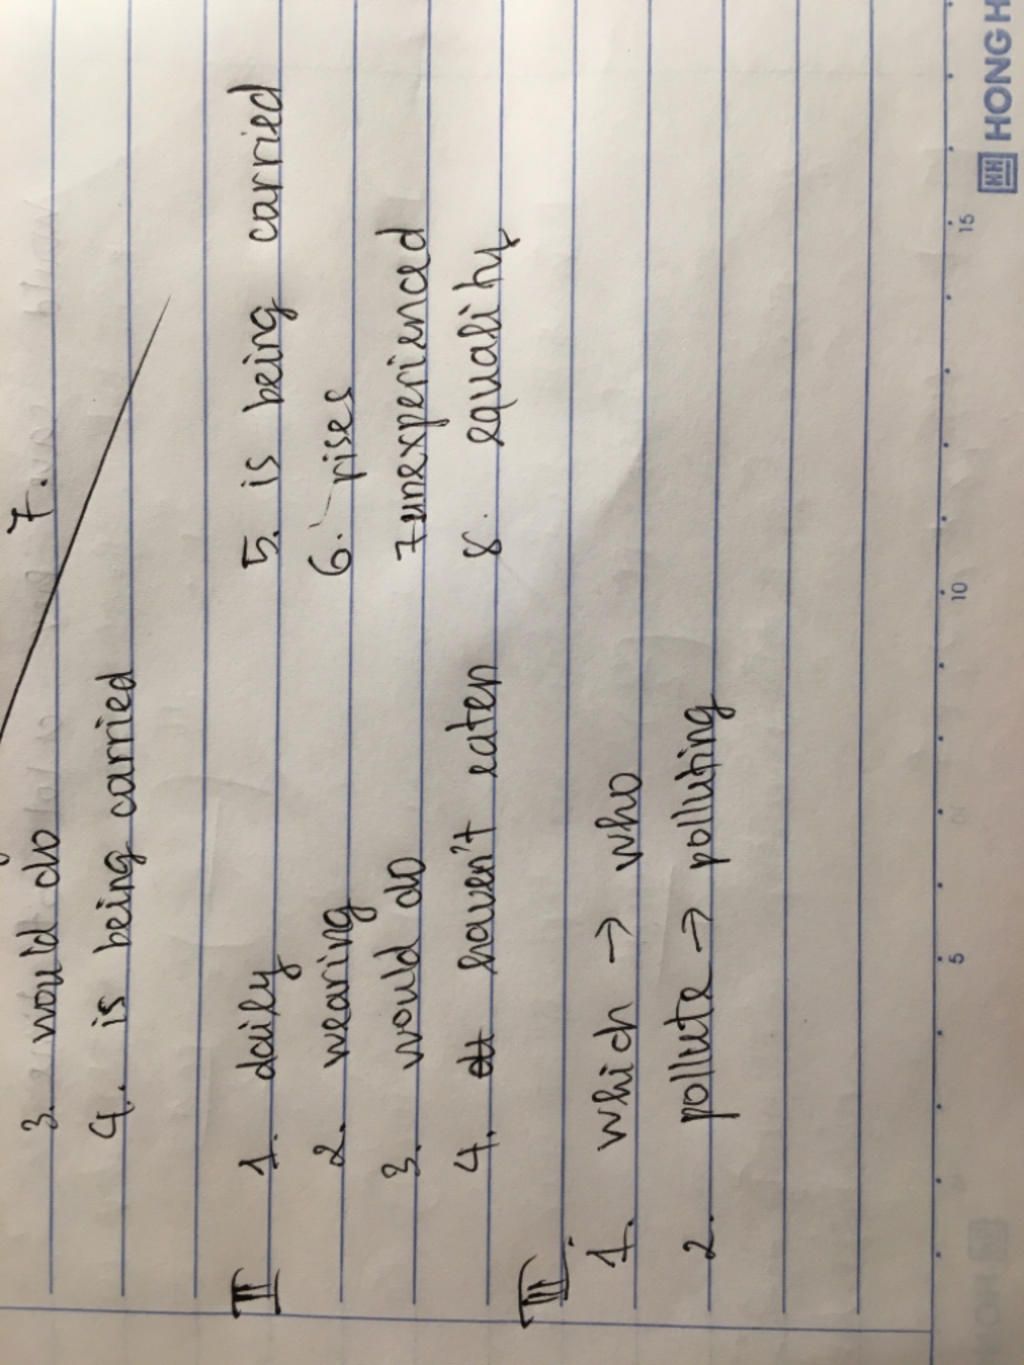 3. would do 7.
4. is being carried
II 1. daily 5. is being carried
2. wearing 6. rises
3. would do 7 unexperienced
4. haven't eaten 8. equality
III. 1. which → who
2. pollute → polluting
5 10 15
HH HONG H